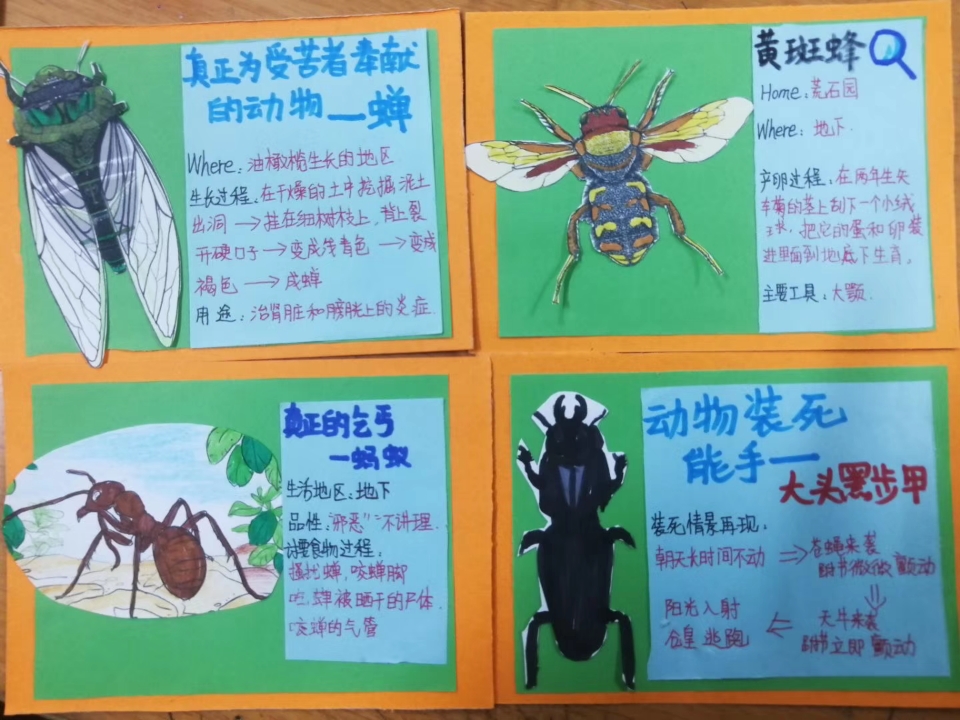 真正为受苦者奉献
的动物—蝉
Where：油橄榄生长的地区
生长过程：在干燥的土中挖掘泥土
出洞→挂在细树枝上，背上裂
开硬口子→变成浅青色→变成
褐色→成蝉
用途：治肾脏和膀胱上的炎症．
黄斑蜂
Home：荒石园
Where：地下．
产卵过程：在两年生矢
车菊的茎上刮下一个小绒
球，把它的蛋和卵装
进里面到地底下生育。
主要工具：大颚．
真正的乞丐
—蚂蚁
生活地区：地下
品性：“邪恶”“不讲理．
讨要食物过程：
骚扰蝉，咬蝉脚
吃蝉被晒干的尸体．
咬蝉的气管
动物装死
能手—
大头黑步甲
装死情景再现：
朝天长时间不动⇒苍蝇来袭
跗节微微颤动
⇓
天牛来袭
跗节立即颤动
⇐
阳光入射
仓皇逃跑